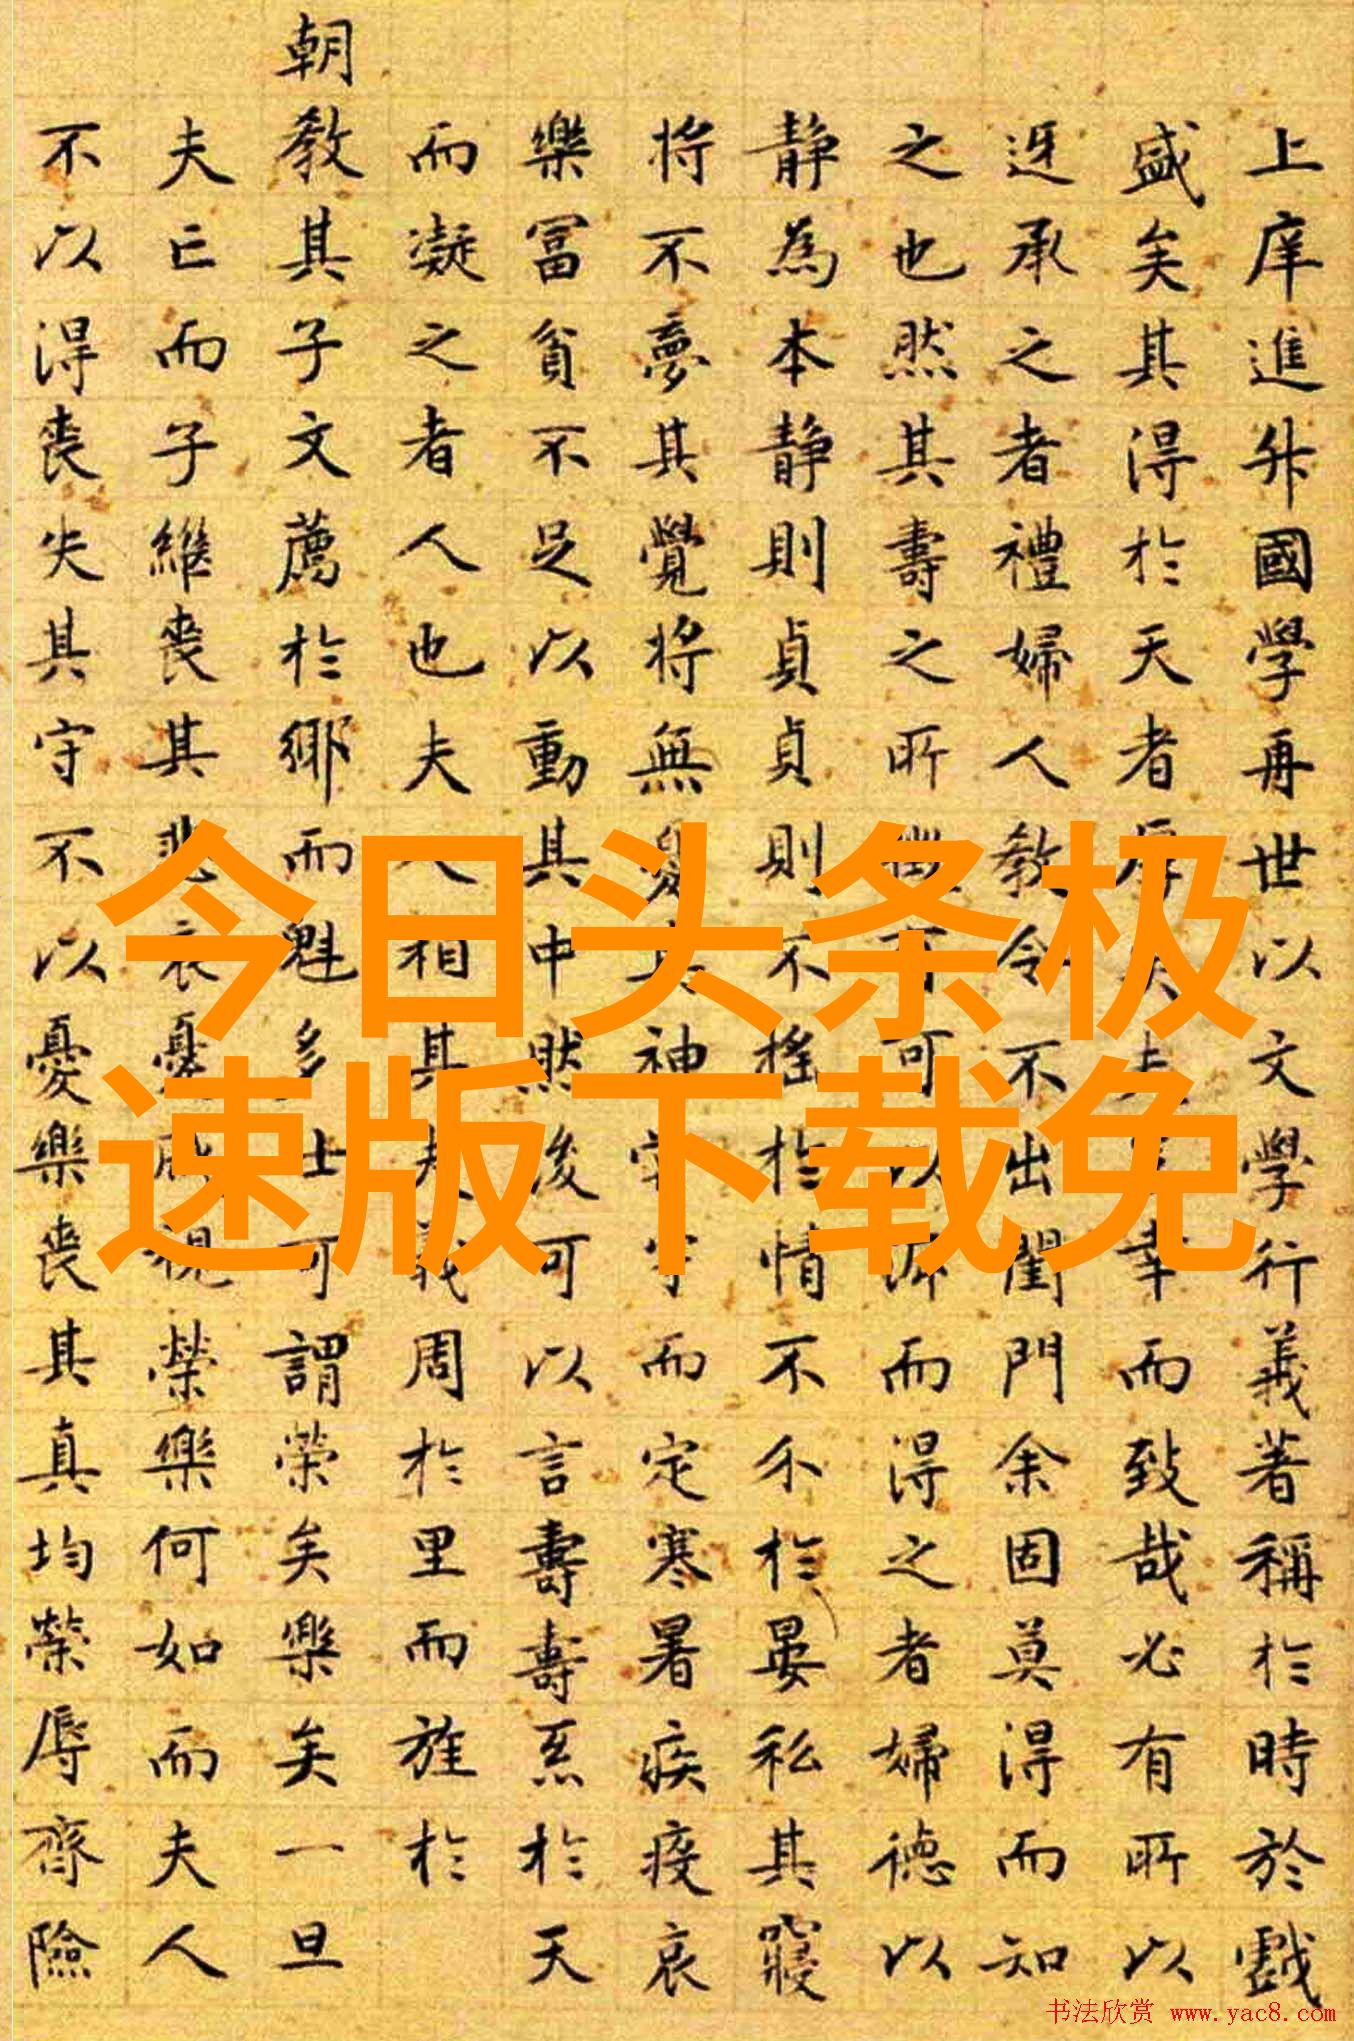 上庠進升國學再世以文學行義著稱於時於戲
盛矣其得於天者厚夫幸而致哉必有所以
迓承之者禮婦人教令不出閨門余固莫得而知
之也然其壽之所可以而得之者婦德以
静為本静則貞貞則不摇於情不尒於晏私其寢
將不夢其覺將無憂其神寧而定寒暑疾疫哀
樂冨貧不足以動其中然後可以言壽壽炁於天
而凝之者人也夫人相其夫義周於里而旌於
朝教其子文薦於鄉而魁多士可謂荣矣樂矣一旦
夫亡而子繼喪其悲哀憂戚視榮樂何如而夫人
不以得喪失其守不以憂樂喪其真均榮辱齊險
今日头条极
速版下载免
书法欣赏 www.yac8.com